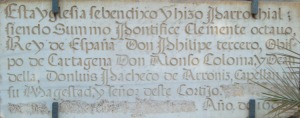 Esta yglesia se bendixo y hizo Parrochial;
siendo Summo Pontifice Clemente octauo,
Rey de España Don Philipe tercero, Obis-
po de Cartagena Don Alonso Coloma y De an
della, Don Luis Pacheco de Arronis, Capellan de
su Magestad y Señor deste Cortijo.
Año. de 160